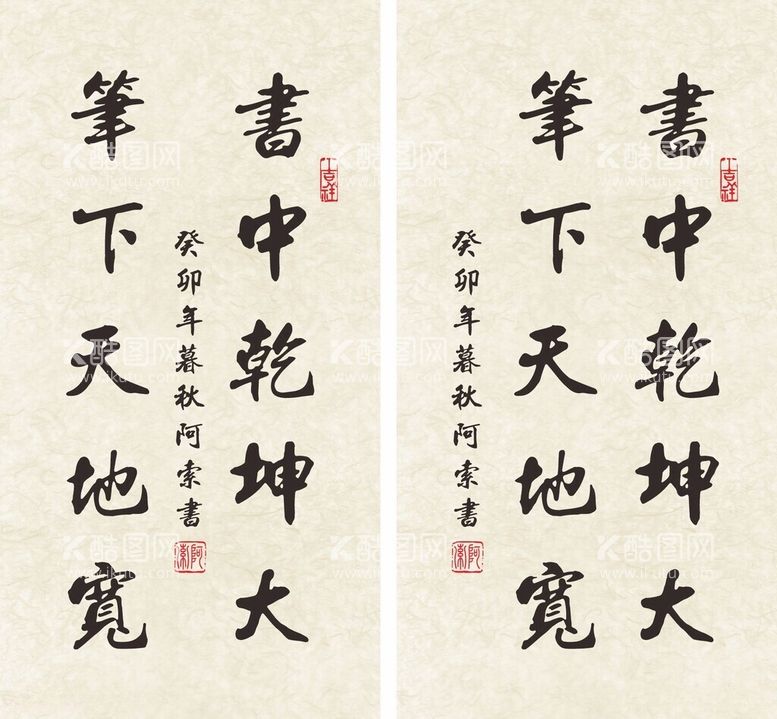 書中乾坤大
吉祥
癸卯年暮秋阿索書
阿索
筆下天地寬
書中乾坤大
吉祥
筆下天地寬
癸卯年暮秋阿索書
阿索
K酷图网
www.ikutu.com